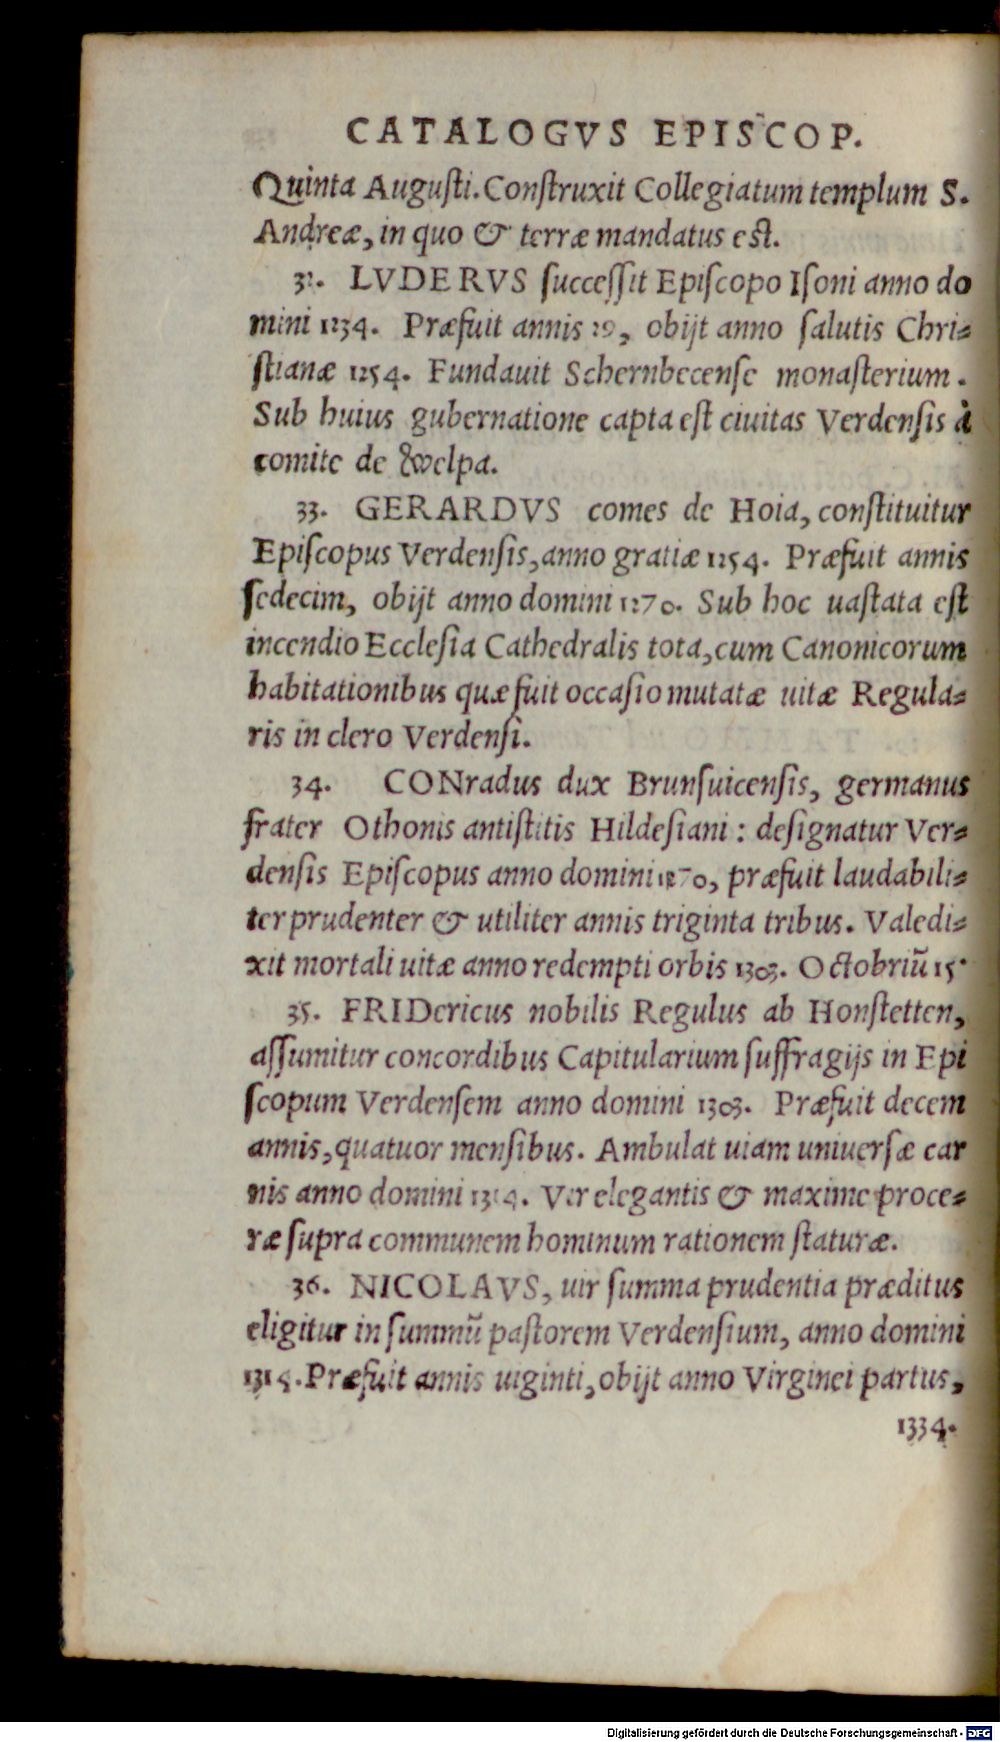 CATALOGVS EPISCOP.
Quinta Augusti. Construxit Collegiatum templum S.
Andreæ, in quo & terræ mandatus est.
32. LVDERVS successit Episcopo Isoni anno do
mini 1234. Præfuit annis 29, obijt anno salutis Chri-
stianæ 1254. Fundauit Schernbecense monasterium.
Sub huius gubernatione capta est ciuitas Verdensis à
comite de Welpa.
33. GERARDVS comes de Hoia, constituitur
Episcopus Verdensis, anno gratiæ 1254. Præfuit annis
sedecim, obijt anno domini 1270. Sub hoc uastata est
incendio Ecclesia Cathedralis tota, cum Canonicorum
habitationibus quæ fuit occasio mutatæ uitæ Regula-
ris in clero Verdensi.
34. CONradus dux Brunsuicensis, germanus
frater Othonis antistitis Hildesiani: designatur Ver-
densis Episcopus anno domini 1270, præfuit laudabili-
ter prudenter & utiliter annis triginta tribus. Valedi-
xit mortali uitæ anno redempti orbis 1303. Octobriũ 15.
35. FRIDericus nobilis Regulus ab Honstetten,
assumitur concordibus Capitularium suffragijs in Epi
scopum Verdensem anno domini 1303. Præfuit decem
annis, quatuor mensibus. Ambulat uiam uniuersæ car
nis anno domini 1314. Vir elegantis & maxime proce-
ræ supra communem hominum rationem staturæ.
36. NICOLAVS, uir summa prudentia præditus
eligitur in summũ pastorem Verdensium, anno domini
1314. Præfuit annis uiginti, obijt anno Virginei partus,
1334.
Digitalisierung gefördert durch die Deutsche Forschungsgemeinschaft - DFG